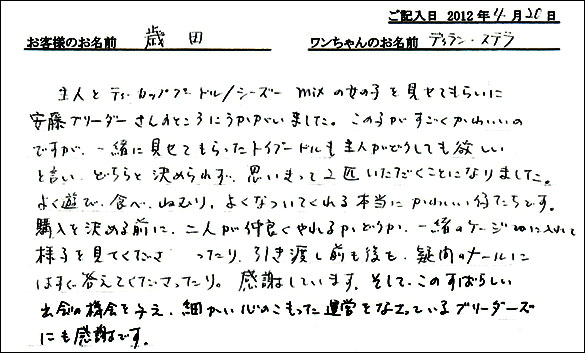 ご記入日 2012年4月20日
お客様のお名前 歳田 ワンちゃんのお名前 ディラン・ステラ
主人とティーカッププードル/シーズー mixの女の子を見せてもらいに
安藤ブリーダーさんのところにうかがいました。この子がすごくかわいいの
ですが、一緒に見せてもらったトイプードルも主人がどうしても欲しい
と言い、どちらと決められず、思いきって2匹いただくことになりました。
よく遊び、食べ、ねむり、よくなついてくれる本当にかわいい仔たちです。
購入を決める前に、二人が仲良くやれるかどうか、一緒のケージに入れて
様子を見てくださ ったり、引き渡し前も後も、疑問のメールに
はすぐ答えてくださったり。感謝しています。そして、このすばらしい
出会の機会を与え、細かい心のこもった運営をなさっているブリーダーズ
にも感謝です。